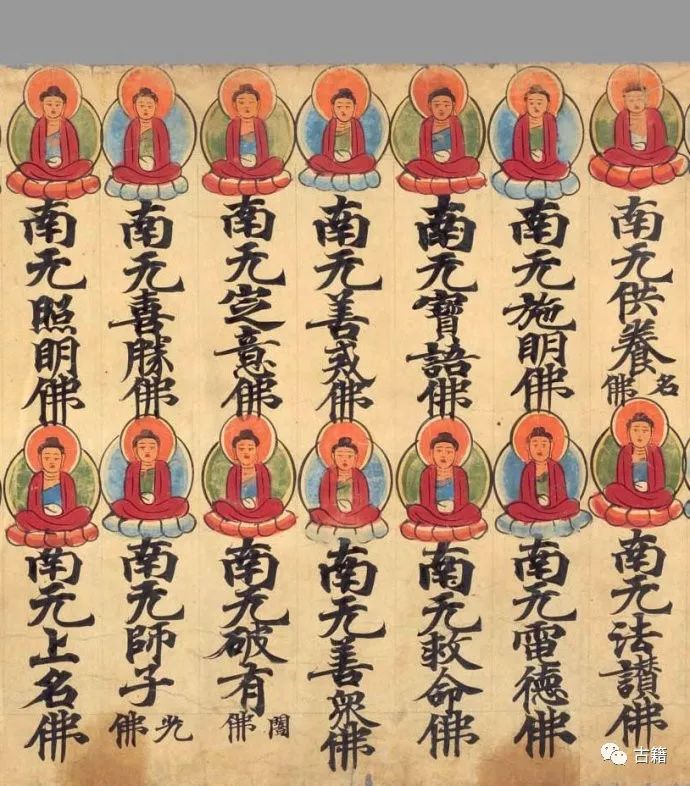 南无供養名佛
南无法讃佛
南无施明佛
南无雷德佛
南无寶語佛
南无救命佛
南无善戒佛
南无善衆佛
南无定意佛
南无破有闇佛
南无喜勝佛
南无師子光佛
南无照明佛
南无上名佛
古籍